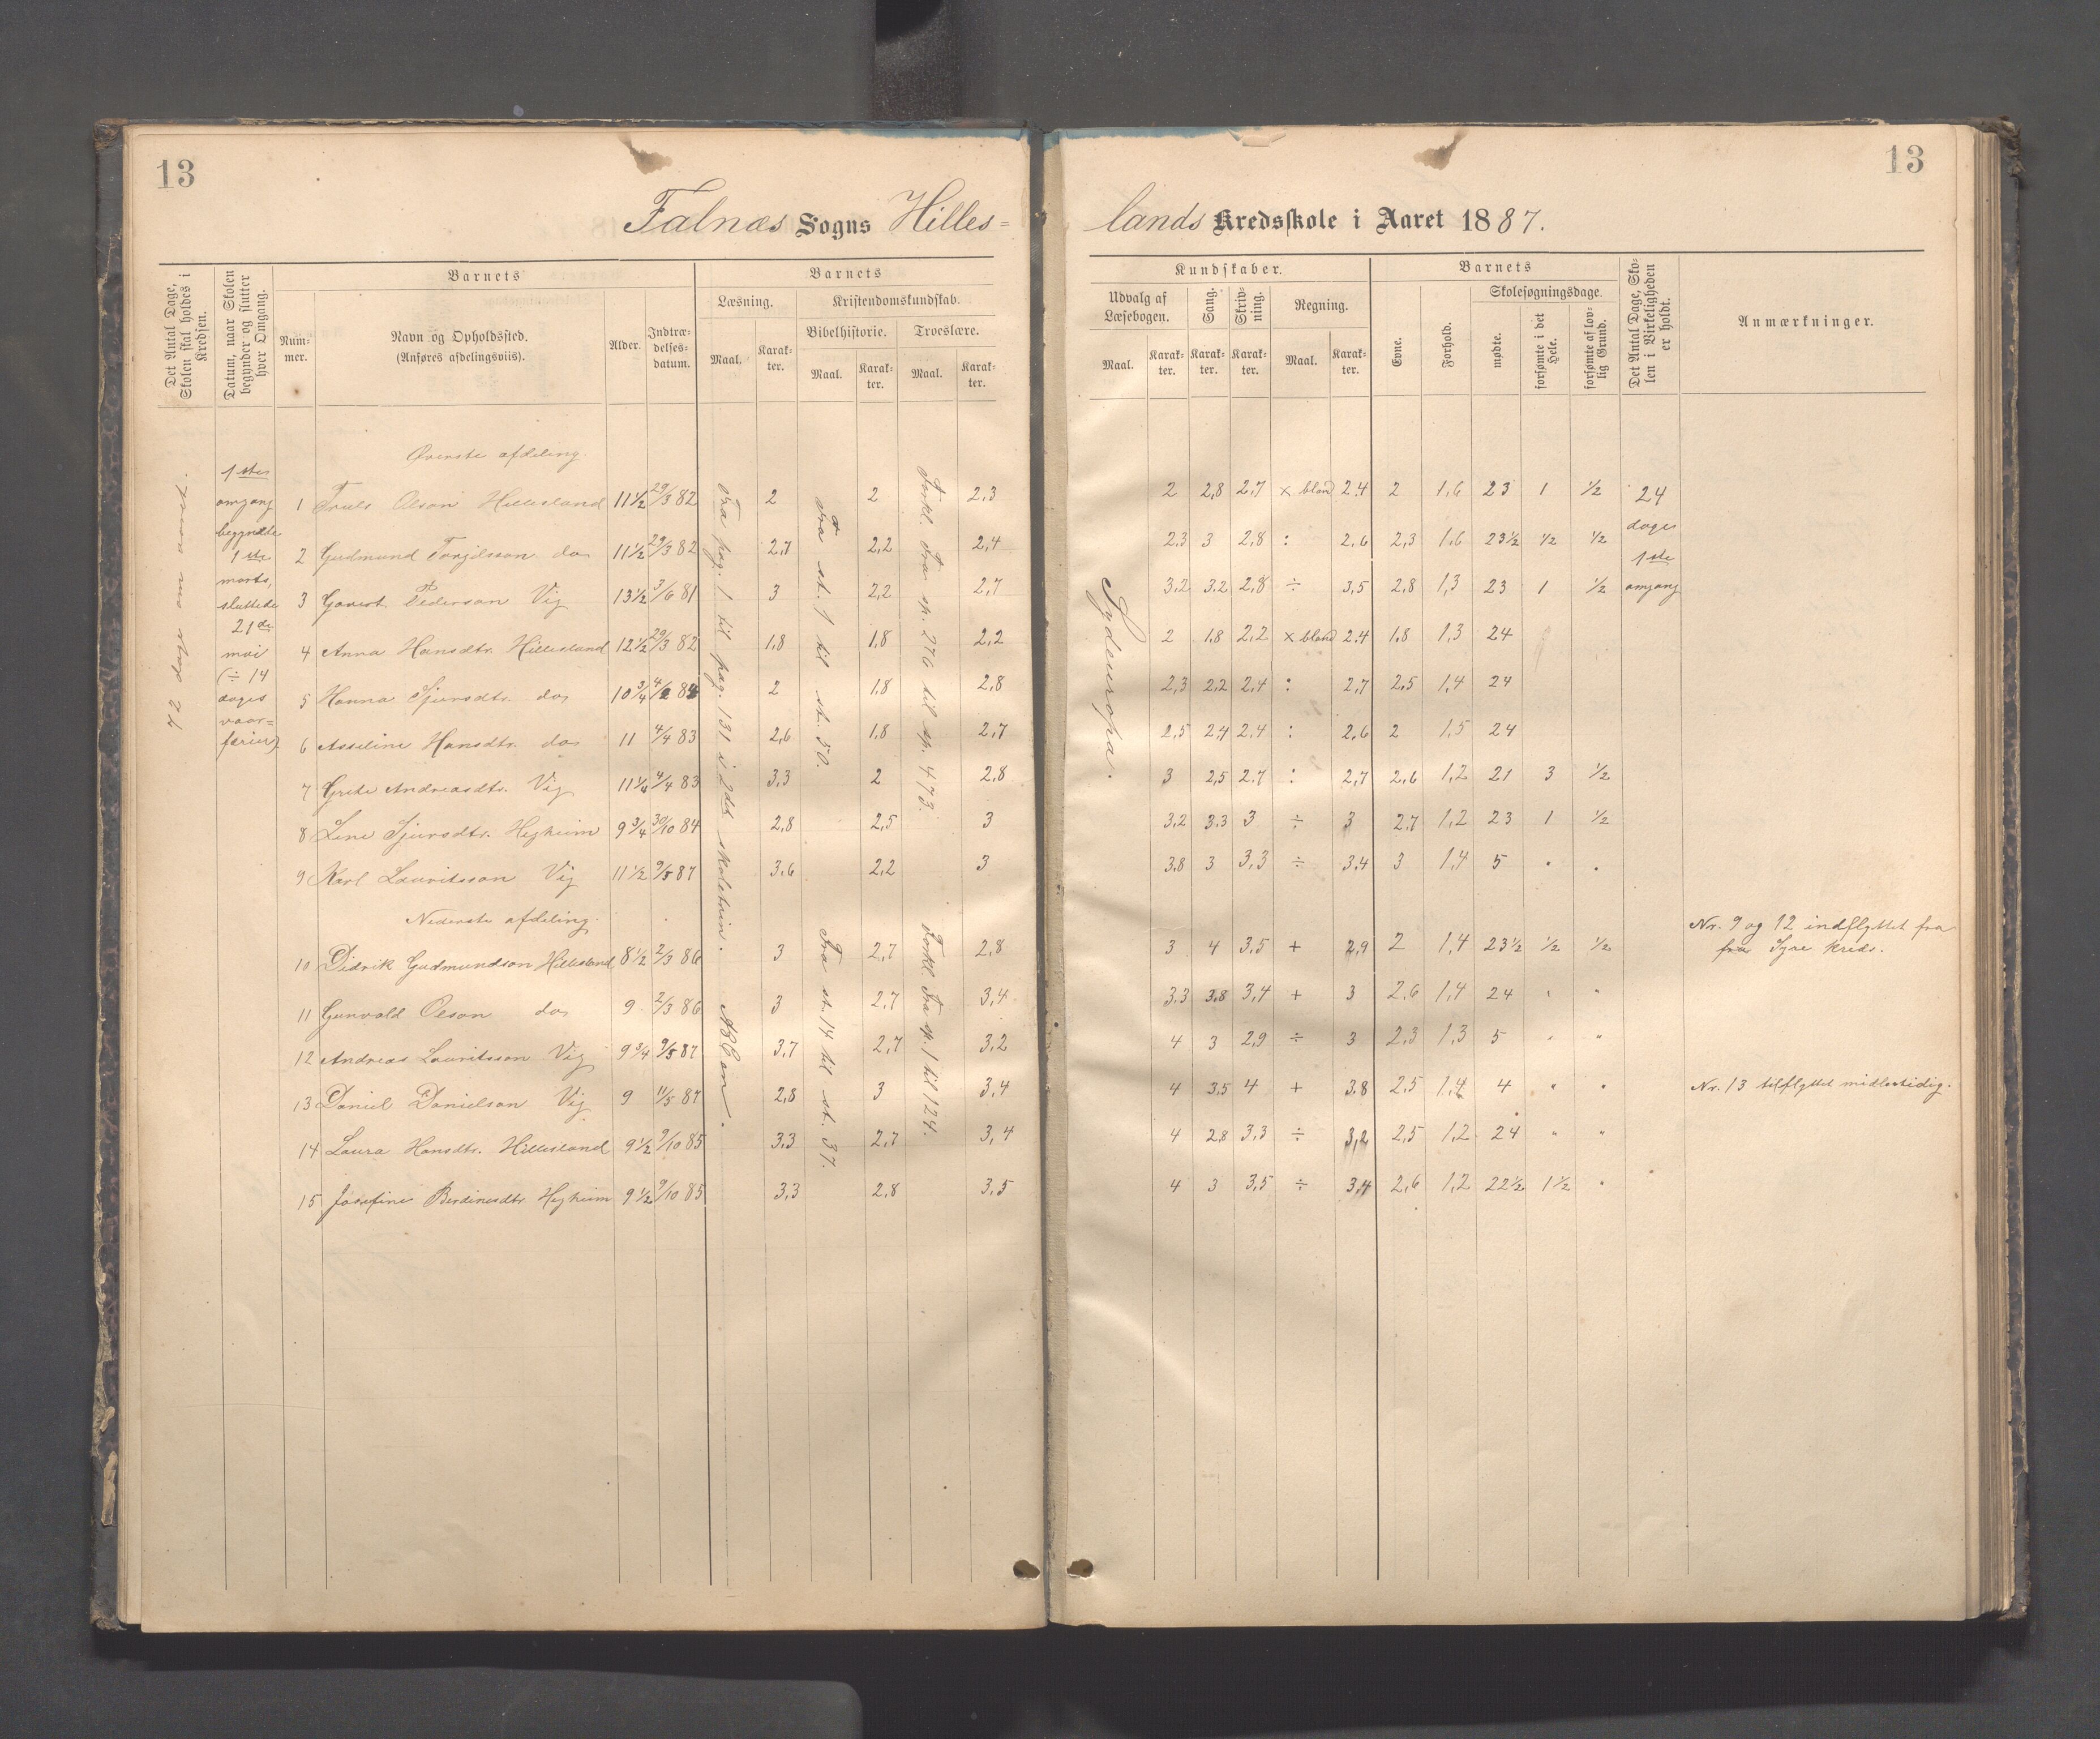 13
13
Falnæs Sogns Hilles=
lands Kredsskole i Aaret 1887.
Det Antal Dage, Skolen skal holdes i Kredsen.
Datum, naar Skolen begynder og slutter hver Omgang.
Barnets
Nummer.
Navn og Opholdssted.
(Anføres afdelingsviis).
Alder.
Indtrædelsesdatum.
Barnets
Læsning.
Maal.
Karakter.
Kristendomskundskab.
Bibelhistorie.
Maal.
Karakter.
Troeslære.
Maal.
Karakter.
Kundskaber.
Udvalg af Læsebogen.
Maal.
Karakter.
Sang.
Karakter.
Skrivning.
Karakter.
Regning.
Maal.
Karakter.
Barnets
Evne.
Forhold.
Skolesøgningsdage.
mødte.
forsømte i det Hele.
forsømte af lovlig Grund.
Det Antal Dage, Skolen i Virkeligheden er holdt.
Anmærkninger.
72 dage om aaret.
1ste
omgang
begyndte
1ste
marts,
sluttede
21de
mai
(÷ 14
dages
vaar=
ferier)
Fra pag. 1 til pag. 131 i 2det skoletrin.
Fra st. 1 til st. 50.
Forkl. Fra sp. 276 til sp. 473.
Sydeuropa.
24
dage
1ste
omgang
Øverste afdeling.
1 Truls Olson Hillesland 11½ 29/3 82 2 2 2,3 2 2,8 2,7 × bland 2.4 2 1,6 23 1 ½
2 Gudmund Torgilsson do 11½ 29/3 82 2,7 2,2 2,4 2.3 3 2,8 : 2.6 2,3 1,6 23½ ½ ½
3 Govert Pederson Vig 13½ 3/6 81 3 2,2 2,7 3.2 3.2 2,8 ÷ 3,5 2,8 1,3 23 1 ½
4 Anna Hansdtr. Hillesland 12½ 29/3 82 1,8 1,8 2,2 2 1.8 2,2 × bland 2.4 1.8 1,3 24
5 Hanna Sjursdtr. do 10¾ 84 2 1,8 2,8 2,3 2,2 2,4 : 2,7 2,5 1,4 24
6 Asseline Hansdtr. do 11 4/4 83 2,6 1,8 2,7 2,5 2,4 2,4 : 2,6 2 1,5 24
7 Grete Andreasdtr. Vig 4/4 83 3,3 2 2,8 3 2,5 2.7 : 2,7 2,6 1,2 21 3 ½
8 Line Sjursdtr. Hegheim 9¾ 30/10 84 2,8 2,5 3 3,2 3.3 3 ÷ 3 2,7 1,2 23 1 ½
9 Karl Lauritsson Vig 11½ 9/5 87 3,6 2,2 3 3.8 3 3,3 ÷ 3.4 3 1,4 5 . .
Nederste afdeling.
ABCen.
Fra st. 14 til st. 37.
Forkl. Fra sp. 1 til 124.
10 Didrik Gudmundson Hillesland 8½ 2/3 86 3 2,7 2,8 3 4 3,5 + 2,9 2 1,4 23½ ½ ½
Nr. 9 og 12 indflyttet fra
fra Syre kreds.
11 Gunvald Olson do 9 2/3 86 3 2,7 3,4 3.3 3.8 3,4 + 3 2,6 1,4 24 " "
12 Andreas Lauritsson Vig 9¾ 9/5 87 3,7 2,7 3,2 4 3 2,9 ÷ 3 2,3 1,3 5 " "
13 Daniel Danielson Vig 9 11/5 87 2,8 3 3,4 4 3,5 4 + 3.8 2,5 1,4 4 " "
Nr. 13 tilflyttet midlertidig.
14 Laura Hansdtr. Hillesland 9½ 9/10 85 3,3 2,7 3,4 4 2,8 3,3 ÷ 3,2 2,5 1,2 24 " "
15 Josefine Berdinesdtr. Hegheim 9½ 9/10 85 3,3 2,8 3,5 4 3 3,5 ÷ 3,4 2,6 1,2 22½ 1½ "